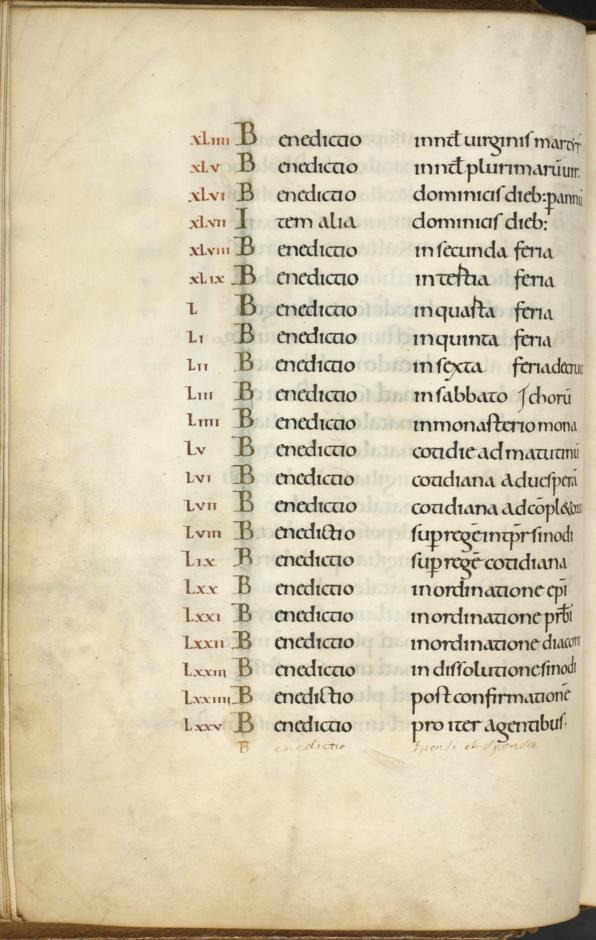 xLiiii Benedictio in nt̄ uirginis martyr
xLv Benedictio in nt̄ plurimarū uir.
xLvi Benedictio dominicis dieb: p annū
xLvii Item alia dominicis dieb:
xLviii Benedictio in secunda feria
xLix Benedictio in tertia feria
L Benedictio in quarta feria
Li Benedictio in quinta feria
Lii Benedictio in sexta feria decruc
Liii Benedictio in sabbato
Liiii Benedictio in monasterio mona ʃchorū
Lv Benedictio cotidie ad matutinū
Lvi Benedictio cotidiana ad uesperā
Lvii Benedictio cotidiana ad
Lviii Benedictio sup regē sinodi
Lix Benedictio sup regē cotidiana
Lxx Benedictio in ordinatione ep̄i
Lxxi Benedictio in ordinatione prb̄i
Lxxii Benedictio in ordinatione diaconi
Lxxiii Benedictio in dissolutione sinodi
Lxxiiii Benedictio post confirmationē
Lxxv Benedictio pro iter agentibus.
Benedictio sponsi et sponsae